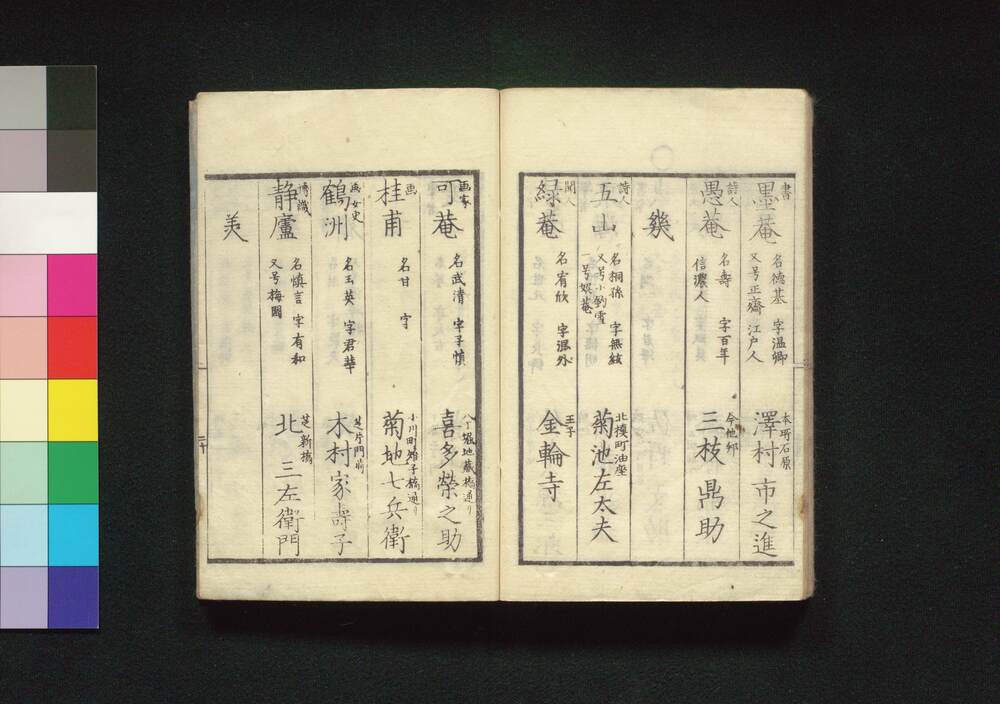 書
墨菴
名德基 字温卿
又号正齋 江戸人
本所石原
澤村市之進
詩人
愚菴
名壽 字百年
信濃人
今他邦
三枝鼎助
幾
詩人
五山
名桐孫 字無絃
又号小釣雪
一号娯菴
北槙町油座
菊池左太夫
聞人
緑菴
名宥欣 字温外
王子
金輪寺
画家
可菴
名武清 字子慎
八丁堀地蔵橋通り
喜多榮之助
画
桂甫
名甘 字
小川町雉子橋通り
菊地七兵衛
画女史
鶴洲
名玉英 字君華
芝片門前
木村家壽子
博識
静廬
名慎言 字有和
又号梅園
芝新橋
北三左衛門
羙